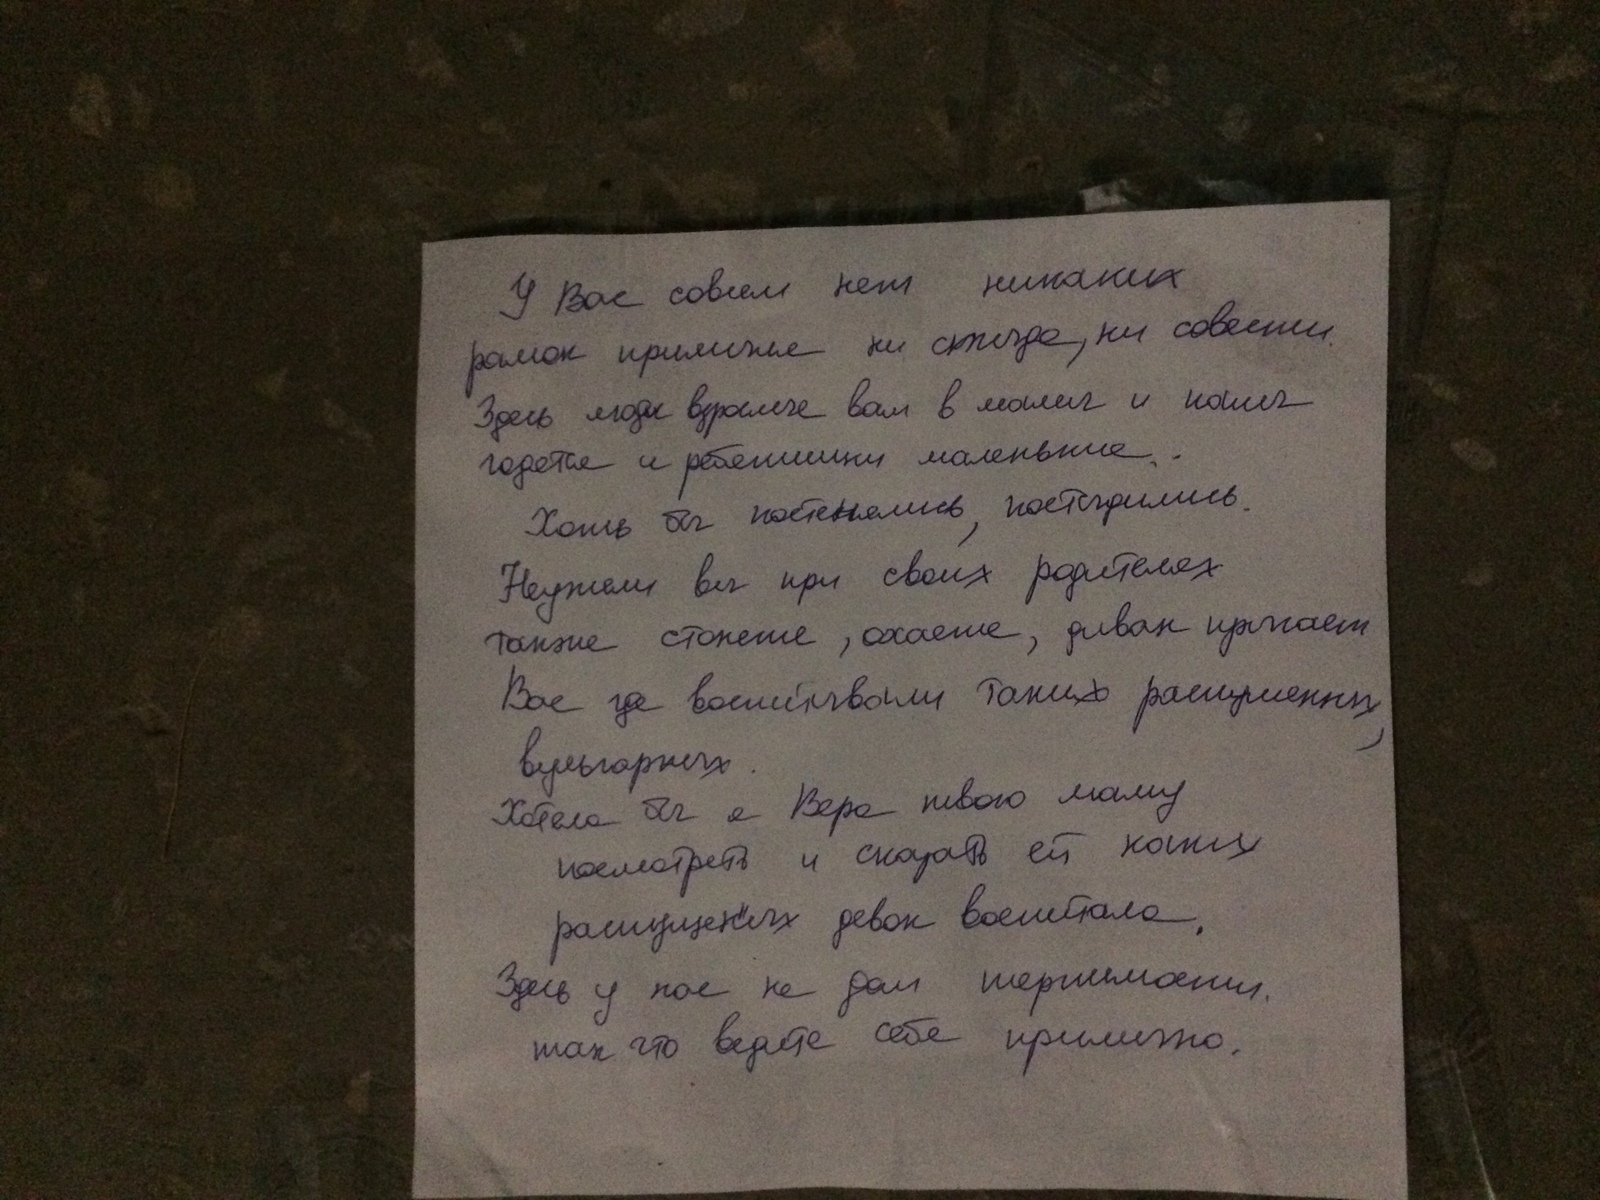 У Вас совсем нет никаких
рамок приличия ни стыда, ни совести.
Здесь люди взрослые вам в мамы и папы
годятся и ребятишки маленькие..
Хоть бы постеснялись, постыдились.
Неужели вы при своих родителях
также стонете, охаете, диван прыгает
Вас где воспитывали таких распущенных,
вульгарных.
Хотела бы я Вера твою маму
посмотреть и сказать ей каких
распущенных девок воспитала.
Здесь у нас не дом терпимости.
так что ведите себя прилично.